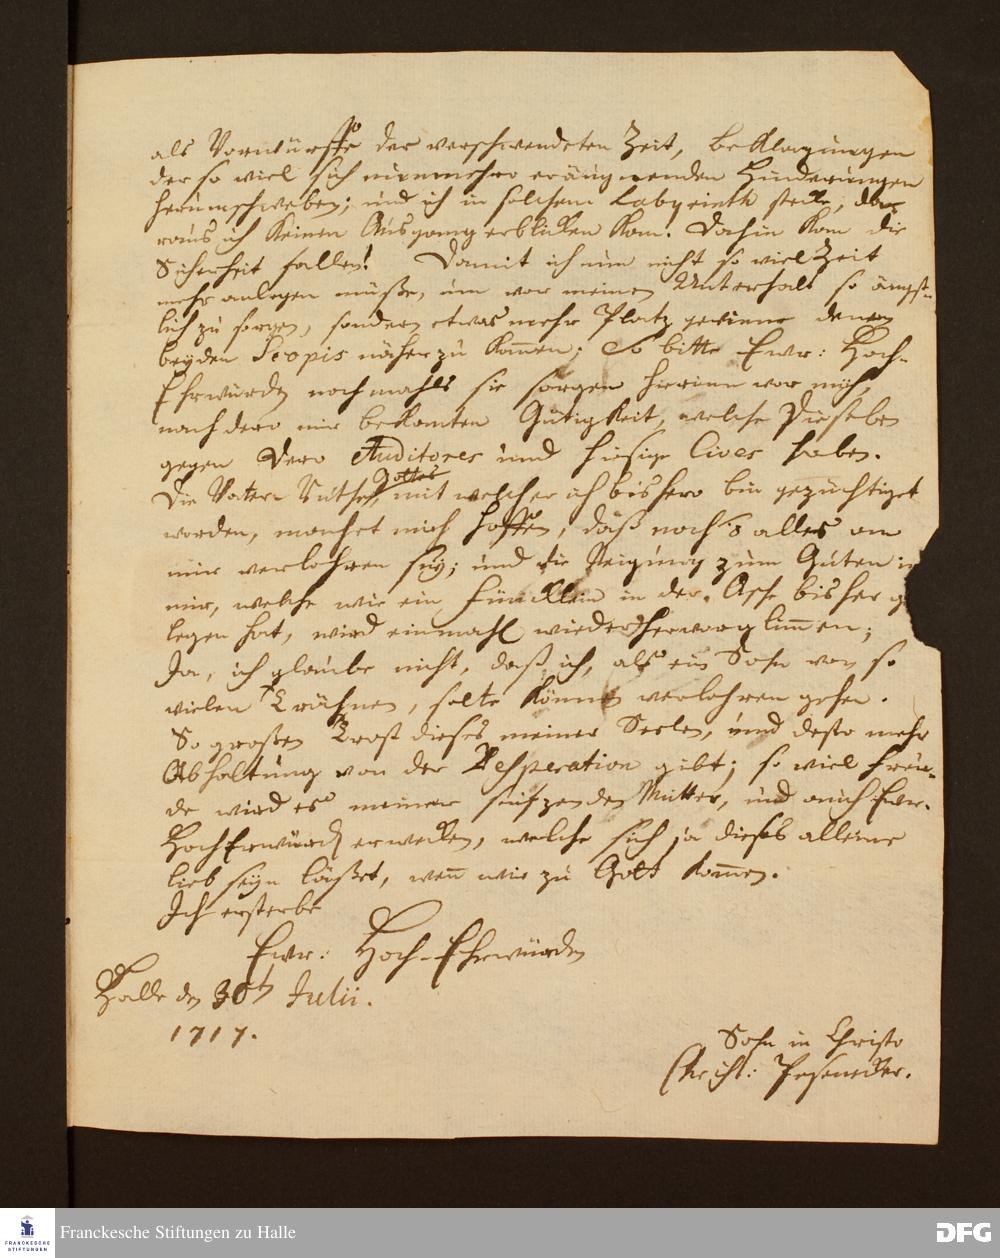 als Vorwürffe der verschwendeten Zeit, beklagungen
der so viel sich nunmehro eräugnenden Hinderungen
herumschweben; und ich in solchem Labyrinth stecke, da
raus ich keinen Ausgang erblicken kan. Dahin kan die
Sicherheit fallen! Damit ich nun nicht so viel Zeit
mehr anlegen müße, um vor meinen Unterhalt so ängst-
lich zu sorgen, sondern etwas mehr Platz gewinne denen
beyden Scopis näher zu kommen; So bitte Ewr: Hoch-
Ehrwürden nochmahls sie sorgen hierinn vor mich,
nach dero mir bekanten Gütigkeit, welche Dieselben
gegen Dero Auditores und hiesige Cives haben.
Die Vater Ruthe Gottes, mit welcher ich bishero bin gezüchtiget
worden, machet mich hoffen, daß noch alles an
mir verlohren sey; und die Neigung zum Guten in
mir, welche wie ein Füncklein in der Asche bisher ge
legen hat, wird einmahl wieder hervorglimmen;
Ja, ich glaube nicht, daß ich, als ein Sohn von so
vielen Trähnen, solte können verlohren gehen.
So großen Trost dieses meiner Seelen, und desto mehr
Abhaltung von der Desperation gibt; so viel Freu-
de wird es meiner seufzenden Mutter, und auch Ewr.
HochEhrwürd erwecken, welche sich ja dieses alleine
lieb seyn läßet, wenn wir zu Gott kommen.
Ich ersterbe
Ewr: Hoch-Ehrwürden
Halle den 30th Julii.
1717.
Sohn in Christo
Christ:
Franckesche Stiftungen zu Halle
FRANCKESCHE
STIFTUNGEN
DFG